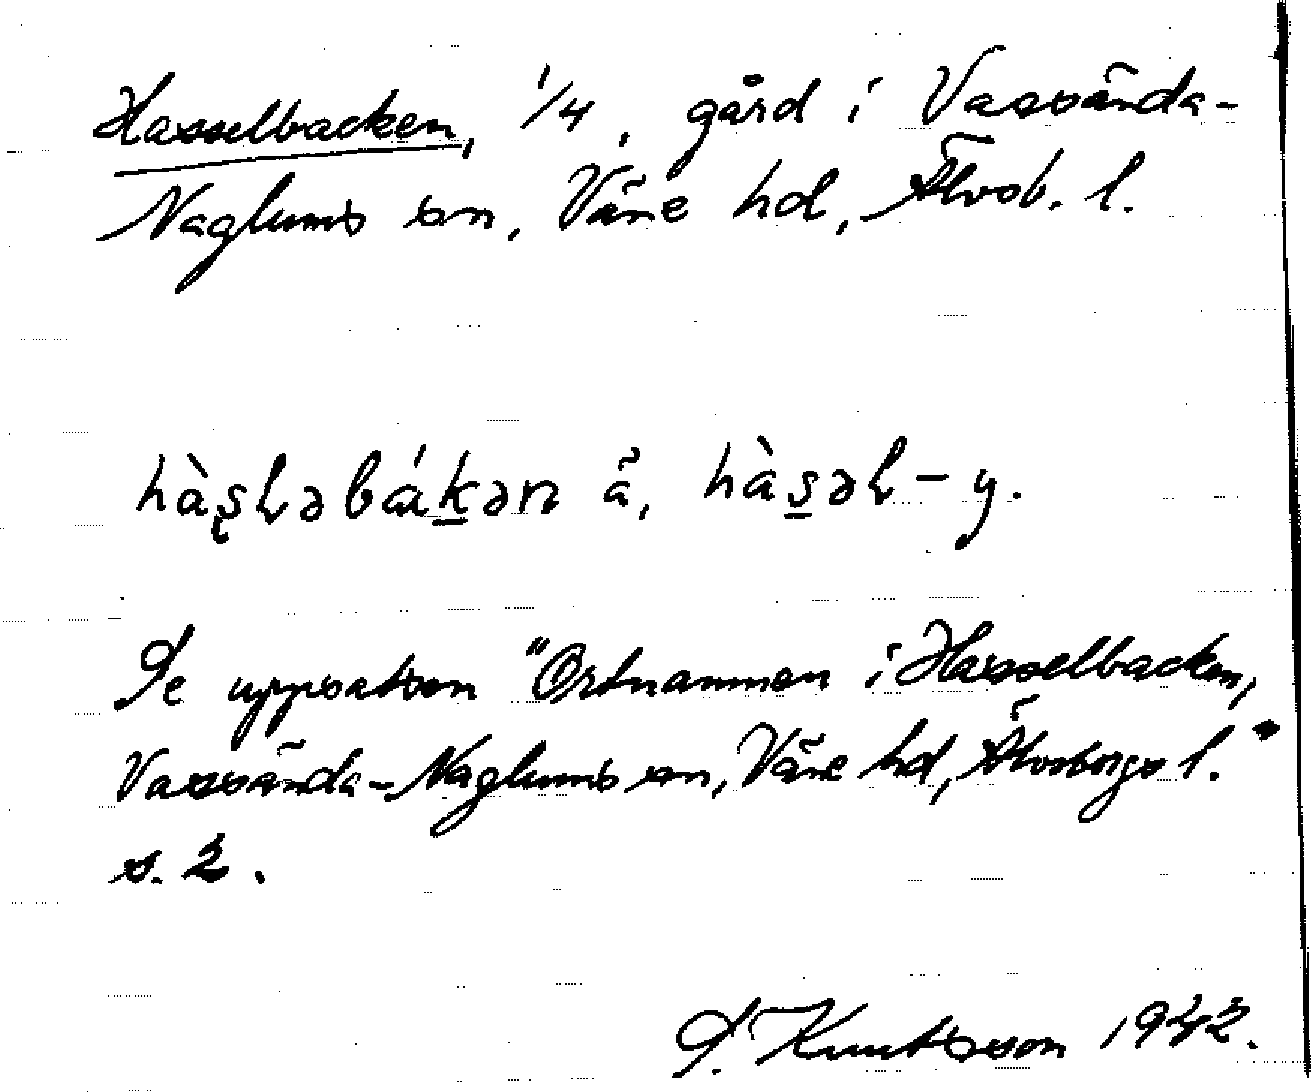 Hasselbacken, 1/4, gård i Vassända-
Naglums sn, Väne hd, Älvsb. l.
hàs̨ɫəbák̠ən å̃, hàs̠əɫ- y.
Se uppsatsen "Ortnamnen i Hasselbacken,
Vassända-Naglums sn, Väne hd, Älvsborgs l."
s. 2.
S. Knutsson 1942.